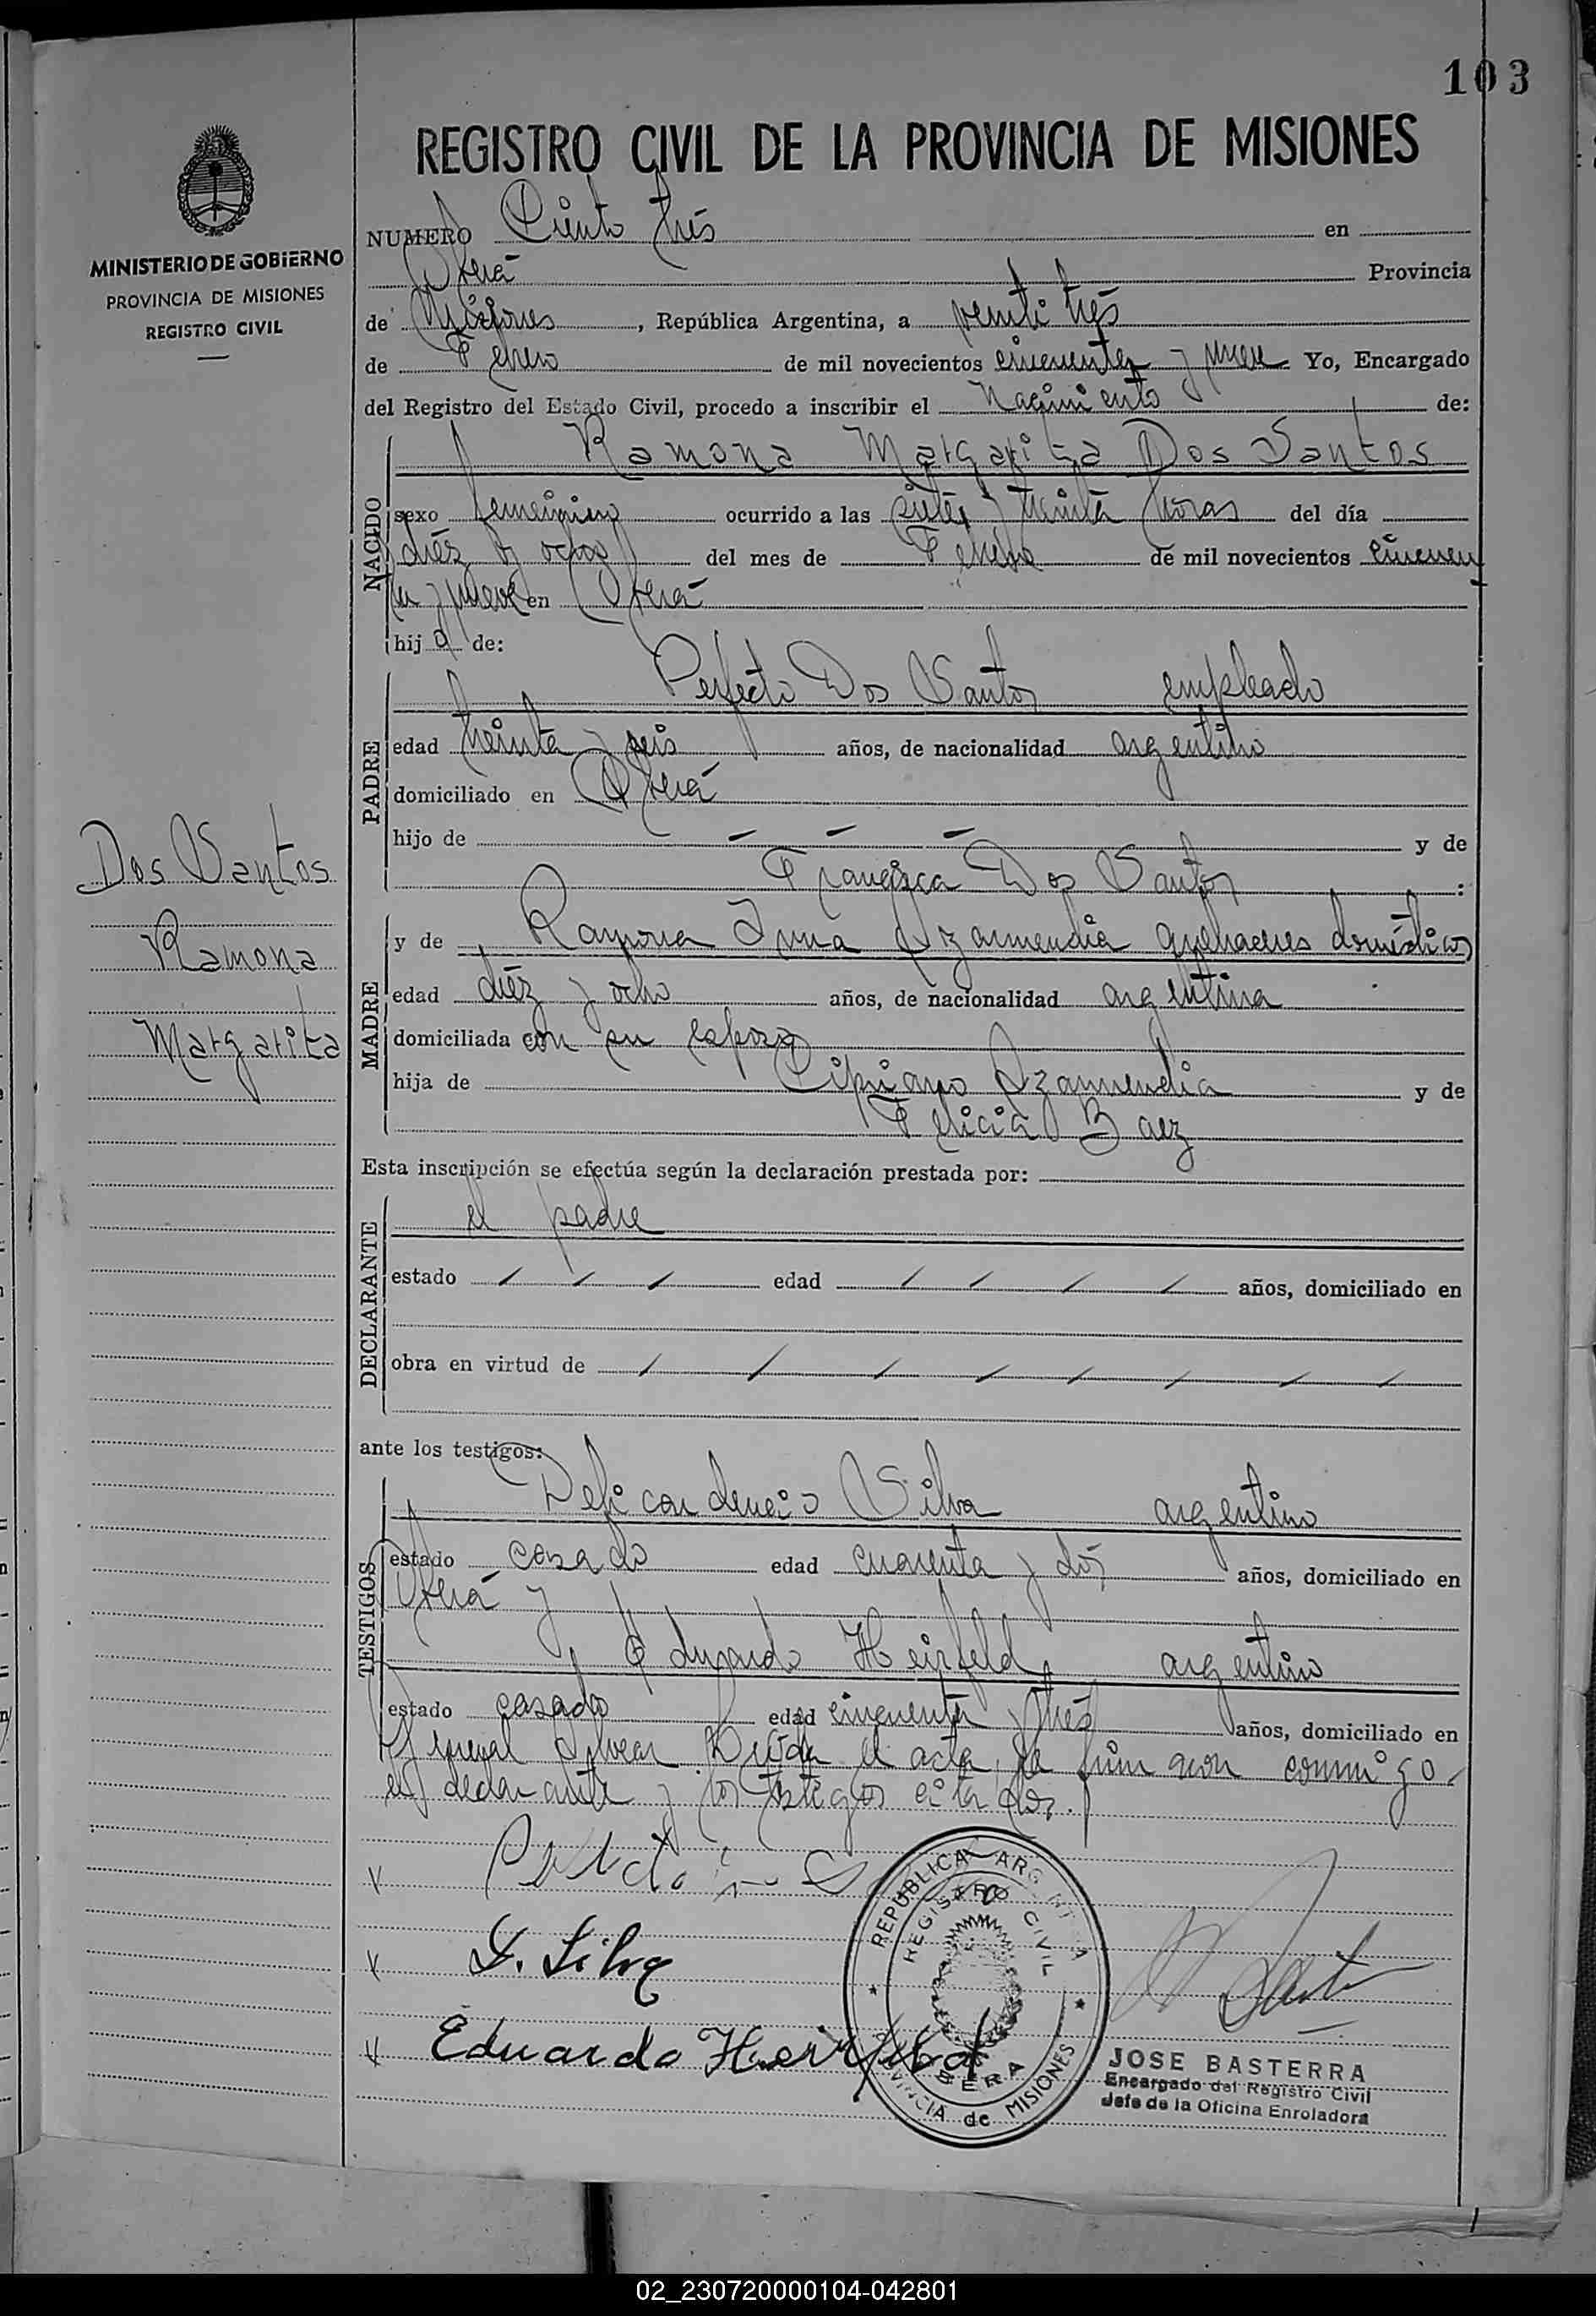 103
REGISTRO CIVIL DE LA PROVINCIA DE MISIONES
MINISTERIO DE GOBIERNO
PROVINCIA DE MISIONES
REGISTRO CIVIL
NUMERO Ciento trés en
Oberá Provincia
de Misiones, República Argentina, a veinti trés
de Enero de mil novecientos cincuenta y nueve Yo, Encargado
del Registro del Estado Civil, procedo a inscribir el Nacimiento de:
NACIDO
Ramona Margarita Dos Santos
sexo femenino ocurrido a las siete y treinta horas del día
diéz y ocho del mes de Enero de mil novecientos cincuen
ta y nueve en Oberá
hija de:
PADRE
Perfecto Dos Santos empleado
edad treinta y seis años, de nacionalidad argentino
domiciliado en Oberá
hijo de - - - y de
Francisca Dos Santos :
Dos Santos
Ramona
Margarita
MADRE
y de Ramona Azarmendia quehaceres domésticos
edad diéz y ocho años, de nacionalidad argentina
domiciliada con su esposo
hija de Cipriano Azarmendia y de
Felicia Baez
Esta inscripción se efectúa según la declaración prestada por:
DECLARANTE
el padre
estado / / / edad / / / / años, domiciliado en
obra en virtud de / / / / / / / /
ante los testigos:
TESTIGOS
Silva argentino
estado casado edad cuarenta y dós años, domiciliado en
Oberá y
Eduardo argentino
estado casado edad cincuenta y trés años, domiciliado en
General Alvear Leída el acta, la firman conmigo
el declarante y los testigos citados.
Silva
Eduardo
REPUBLICA ARGENTINA
REGISTRO CIVIL
OBERA
PROVINCIA de MISIONES
JOSE BASTERRA
Encargado del Registro Civil
Jefe de la Oficina Enroladora
02_230720000104-042801